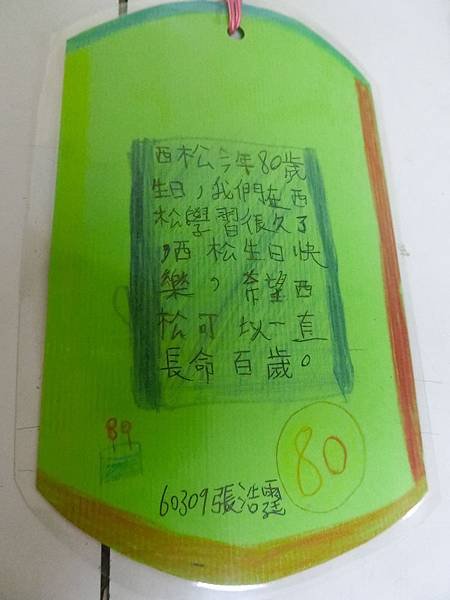 西松今年80歲
生日，我們在西
松學習很久了
，西松生日快
樂，希望西
松可以一直
長命百歲。
89
80
60309張浩霆